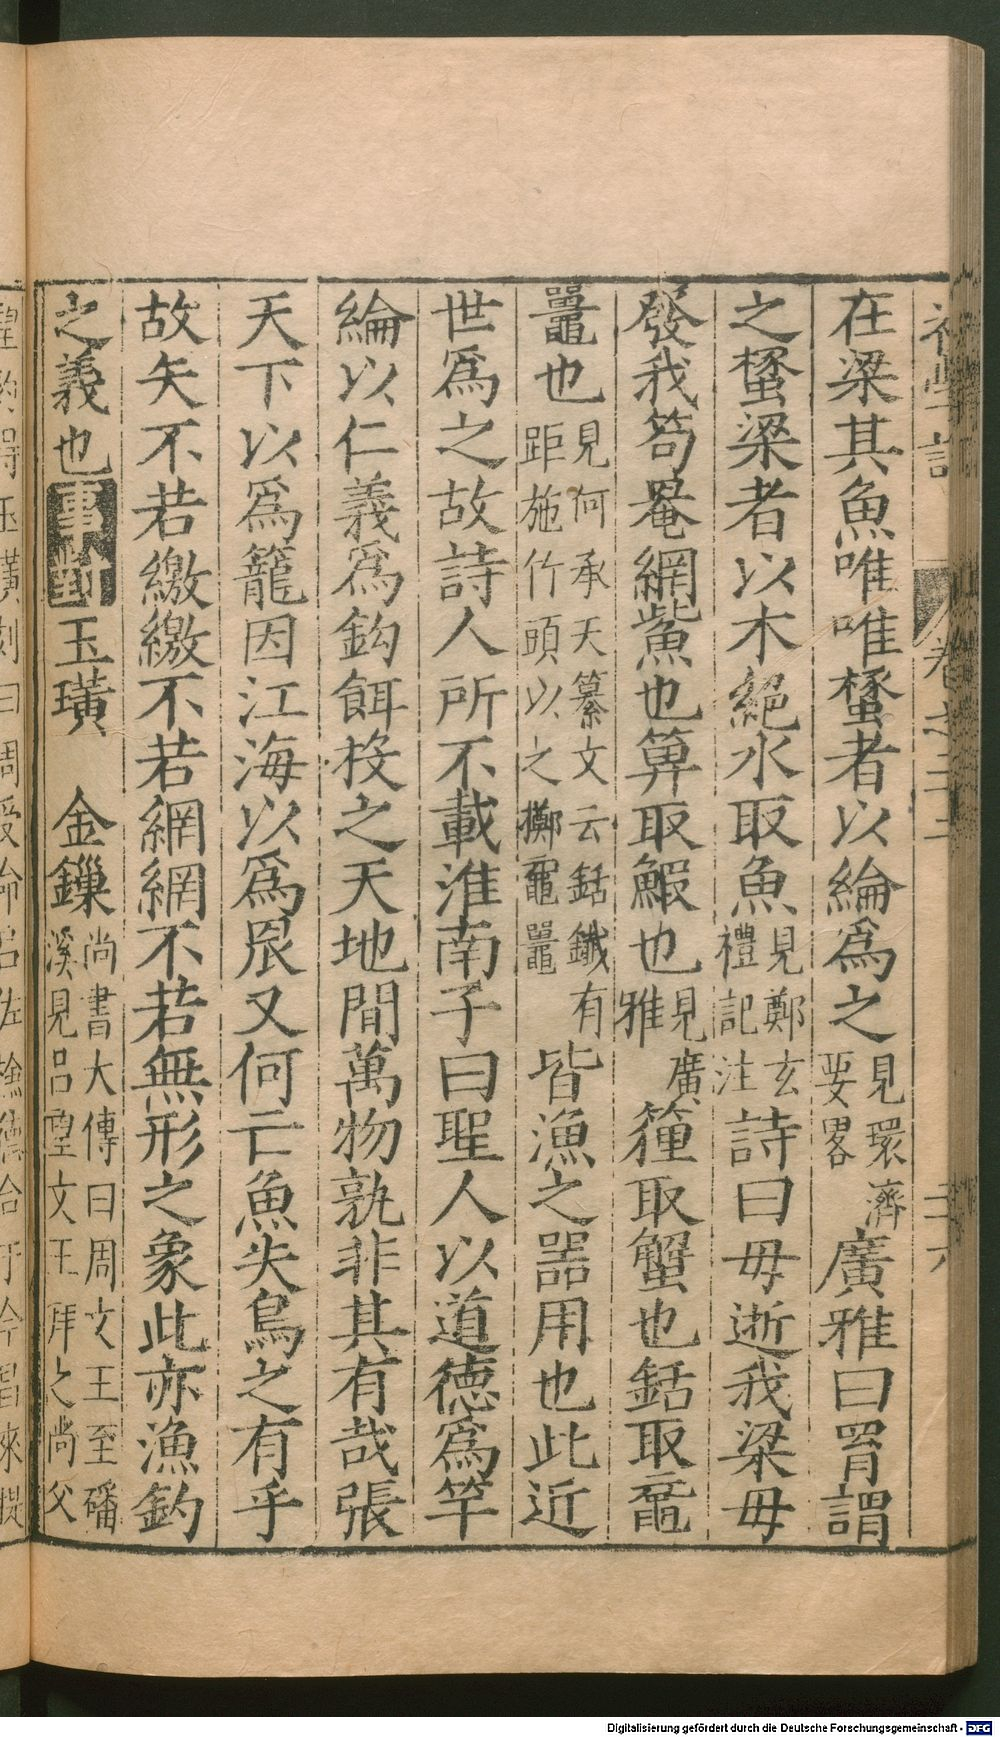 初學記 卷之二十二 三六
在梁其魚唯唯𦊰者以綸爲之見環濟要畧廣雅曰罥謂
之𦊰梁者以木絕水取魚見鄭玄禮記注詩曰毋逝我梁毋
發我笱罨網鮆也箄取鰕也見廣雅籦取蟹也銛取黿
鼉也見何承天纂文云銛鐵有距施竹頭以之擲黿鼉皆漁之噐用也此近
世爲之故詩人所不載淮南子曰聖人以道德爲竿
綸以仁義爲鈎餌投之天地間萬物孰非其有哉張
天下以爲籠因江海以爲罛又何亡魚失鳥之有乎
故矢不若繳繳不若網網不若無形之象此亦漁釣
之義也事對玉璜 金鏁尚書大傳曰周文王至磻溪見呂望文王拜之尚父
望釣得玉璜刻曰周受命呂佐檢德合于今昌來提
Digitalisierung gefördert durch die Deutsche Forschungsgemeinschaft - DFG